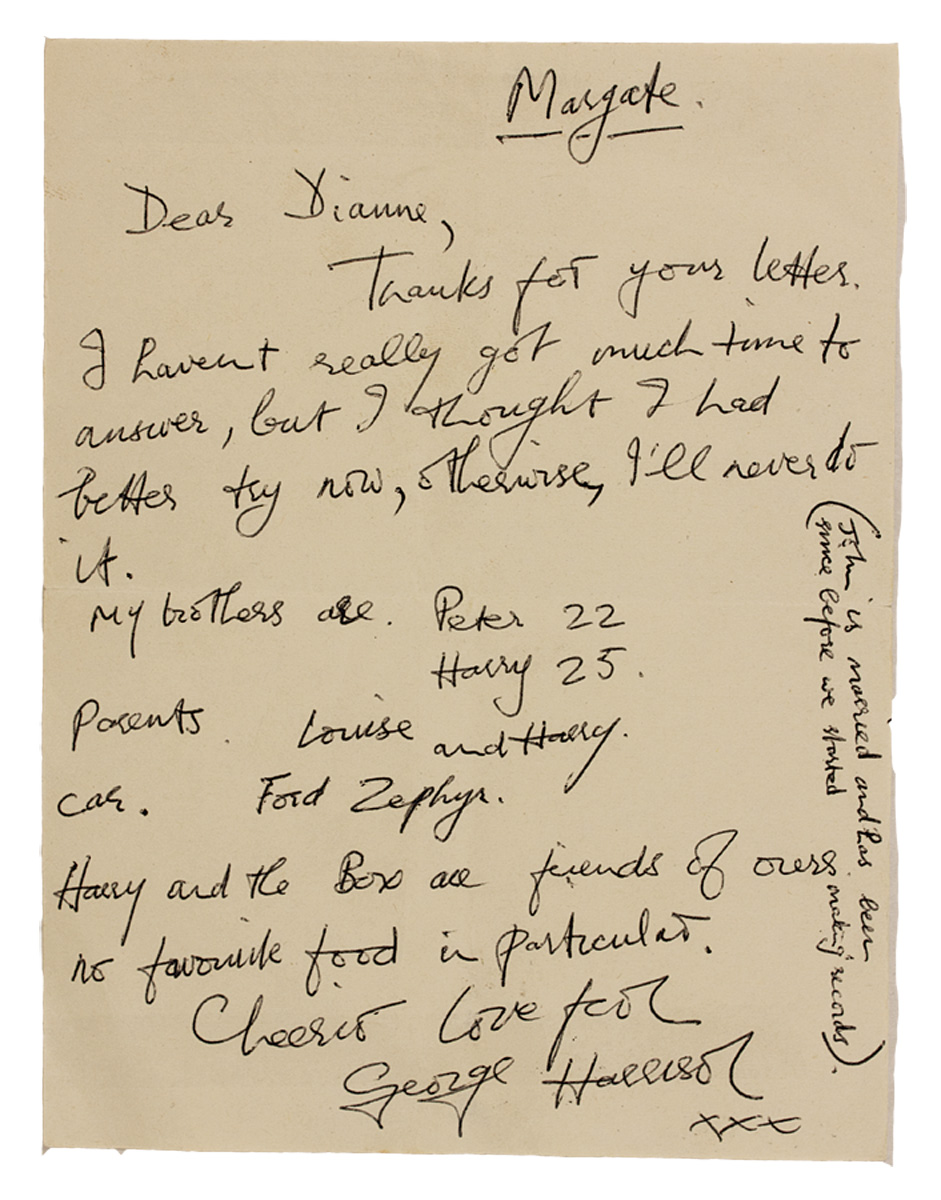 Margate.
Dear Dianne,
Thanks for your letter.
I havent really got much time to
answer, but I thought I had
better try now, otherwise, I'll never do
it.
My brothers are. Peter 22
Harry 25.
Parents. Louise and Harry.
car. Ford Zephyr.
Harry and the Box are friends of ours.
no favourite food in particular.
Cheerio Love from
George Harrison
xxx
(John is married and has been
since before we started making records).